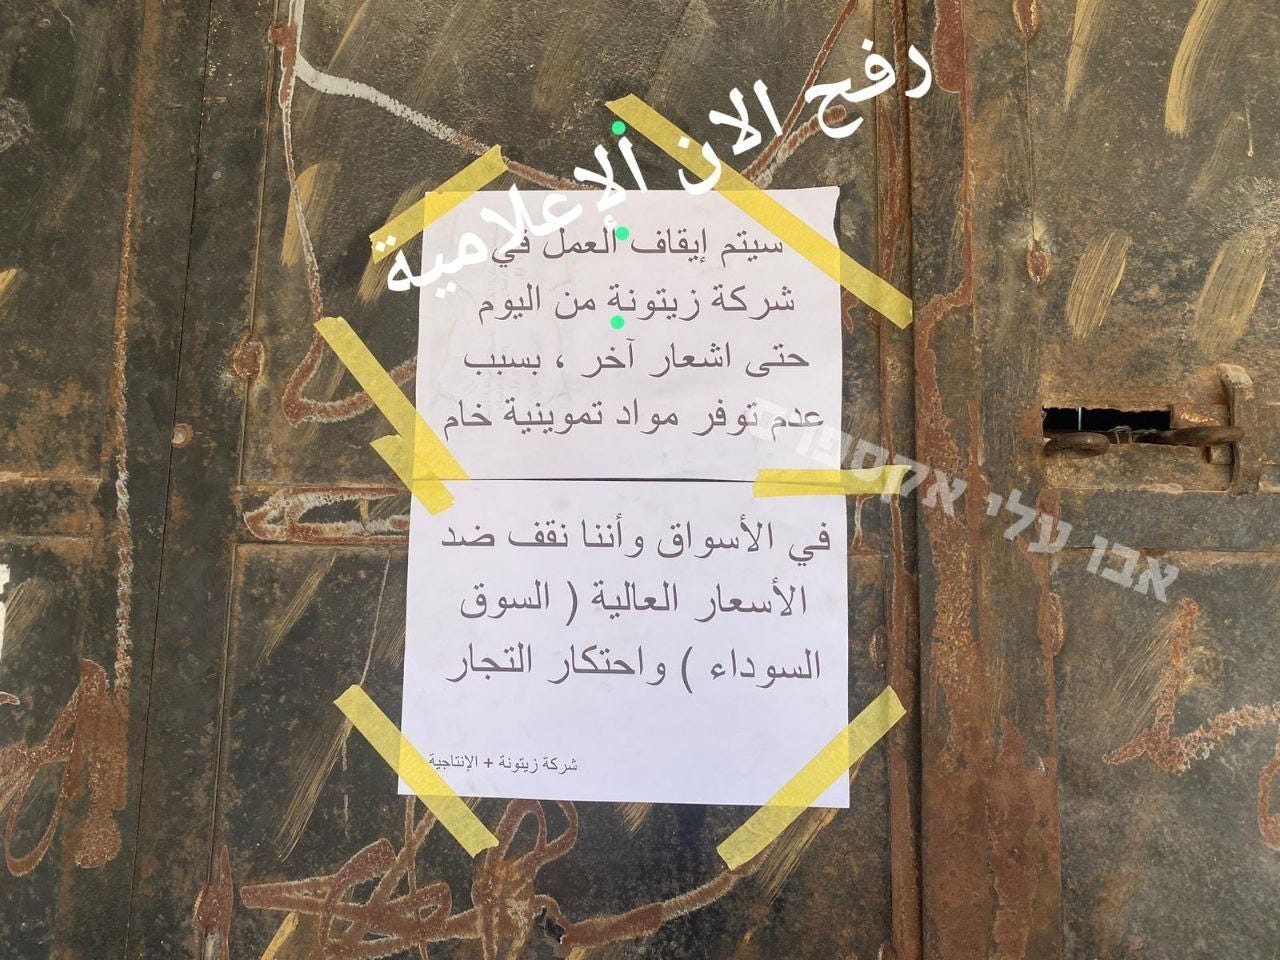 رفح الان ألإعلامية
سيتم إيقاف ألعمل في
شركة زيتونة من اليوم
حتى اشعار آخر ، بسبب
عدم توفر مواد تموينية خام
في الأسواق وأننا نقف ضد
الأسعار العالية ( السوق
السوداء ) واحتكار التجار
شركة زيتونة + الإنتاجية
אבו עלי אקספרס